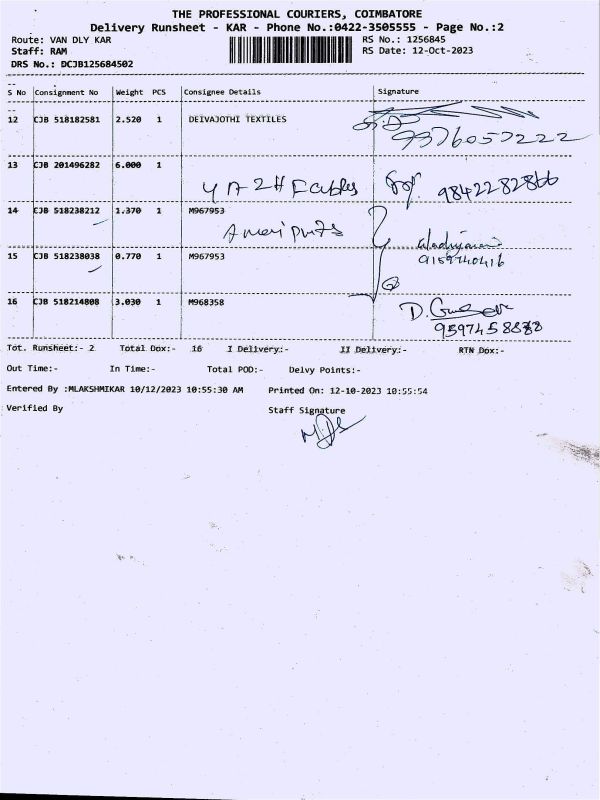 THE PROFESSIONAL COURIERS, COIMBATORE
Delivery Runsheet - KAR - Phone No.:0422-3505555 - Page No.:2
Route: VAN DLY KAR RS No.: 1256845
Staff: RAM RS Date: 12-Oct-2023
DRS No.: DCJB125684502
S No Consignment No Weight PCS Consignee Details Signature
12 CJB 518182581 2.520 1 DEIVAJOTHI TEXTILES
13 CJB 201496282 6.000 1
9842282866
14 CJB 518238212 1.370 1 M967953
15 CJB 518238038 0.770 1 M967953
9159740416
16 CJB 518214808 3.030 1 M968358
Tot. Runsheet:- 2 Total Dox:- 16 I Delivery:- II Delivery:- RTN Dox:-
Out Time:- In Time:- Total POD:- Delvy Points:-
Entered By :MLAKSHMIKAR 10/12/2023 10:55:30 AM Printed On: 12-10-2023 10:55:54
Verified By Staff Signature